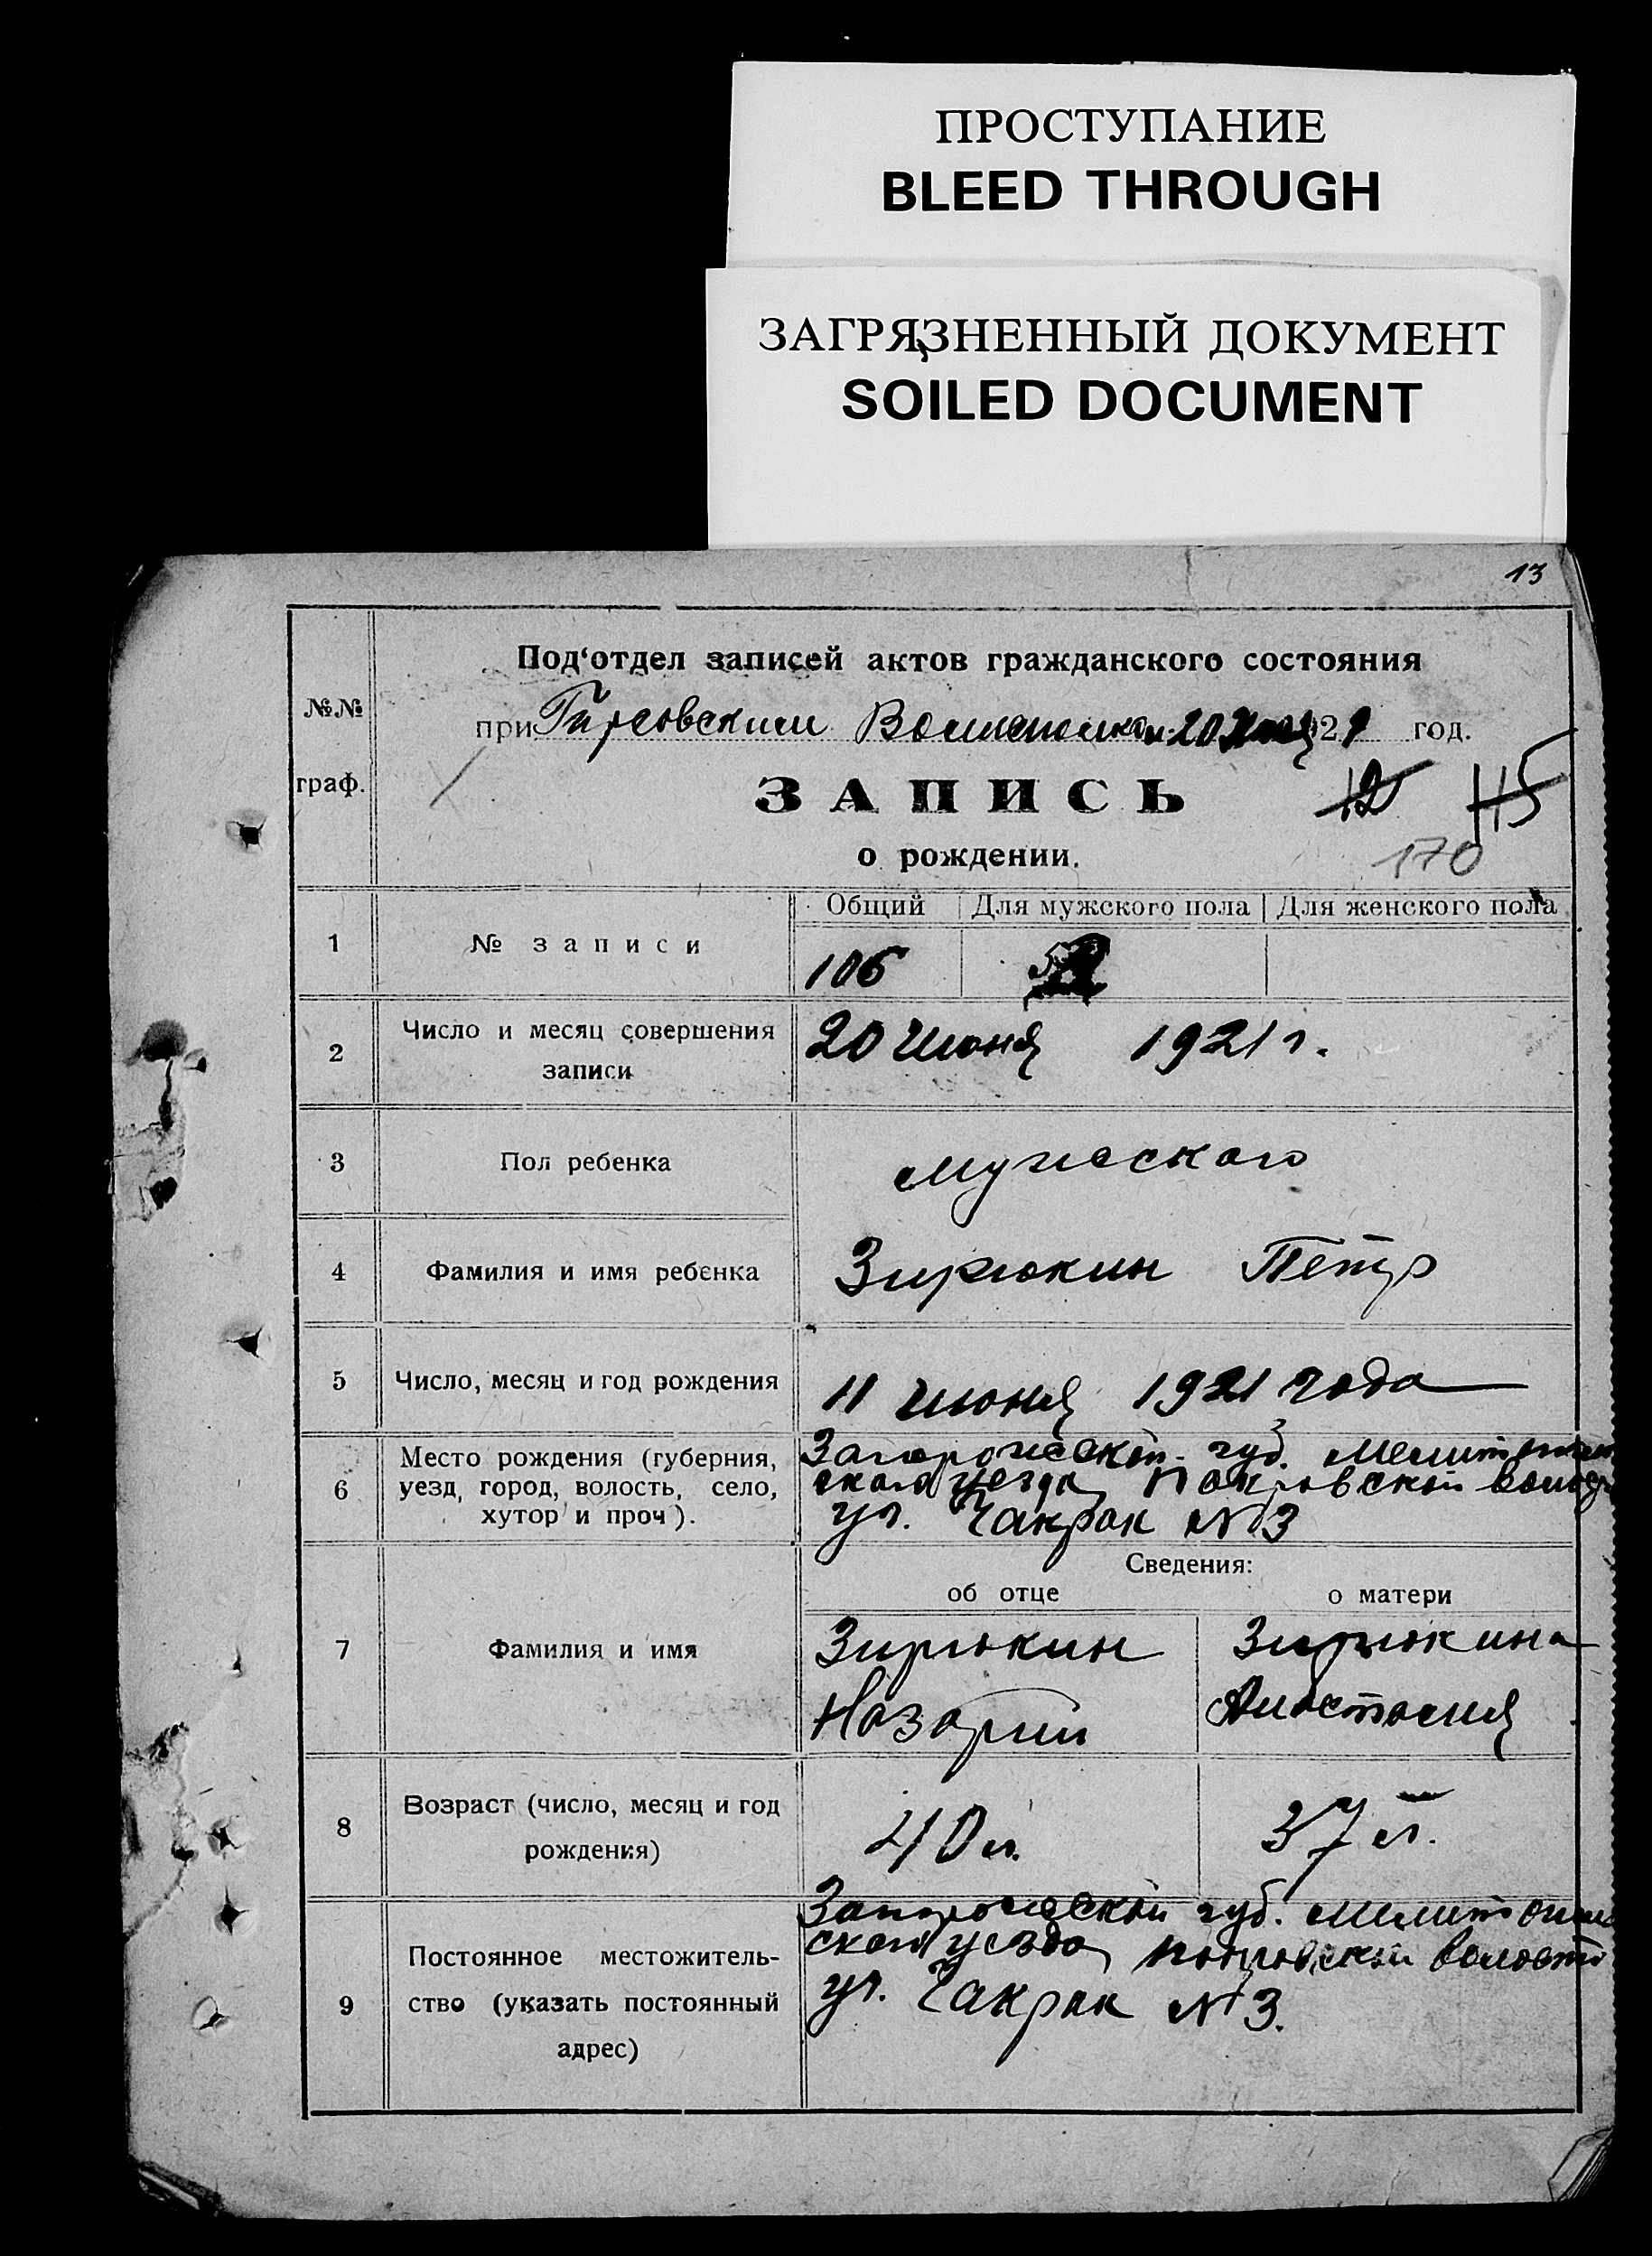 ПРОСТУПАНИЕ
BLEED THROUGH
ЗАГРЯЗНЕННЫЙ ДОКУМЕНТ
SOILED DOCUMENT
13
Под‘отдел записей актов гражданского состояния
№№
граф.
при 20 1921 год.
ЗАПИСЬ
12 115
о рождении.
170
Общий Для мужского пола Для женского пола
1 № записи
106
2 Число и месяц совершения
записи
20 Июня 1921 г.
3 Пол ребенка
мужеского
4 Фамилия и имя ребенка
Зирюкин Петр
5 Число, месяц и год рождения
11 июня 1921 года
6 Место рождения (губерния,
уезд, город, волость, село,
хутор и проч).
Запорожской губ. Мелитополь
ского уезда Покровской
уч. Чакрак №3
Сведения:
об отце о матери
7 Фамилия и имя
Зирюкин Зирюкина
Назарий Анастасия
8 Возраст (число, месяц и год
рождения)
40 л. 37 л.
9 Постоянное местожитель-
ство (указать постоянный
адрес)
Запорожской губ. Мелитополь
ского уезда Покровской волости
уч. Чакрак №3.